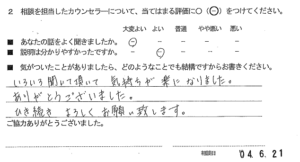 2. 相談を担当したカウンセラーについて、当てはまる評価に○(㊀)をつけてください。
大変よい よい 普通 やや悪い 悪い
■ あなたの話をよく聞きましたか。
■ 説明は分かりやすかったですか。
■ 気がついたことがありましたら、どのようなことでも結構ですからお書きください。
いろいろ聞いて頂いて 気持ちが 楽になりました。
ありがとうございました。
ひき続き よろしく お願い致します。
ご協力ありがとうございました。
'04.6.21